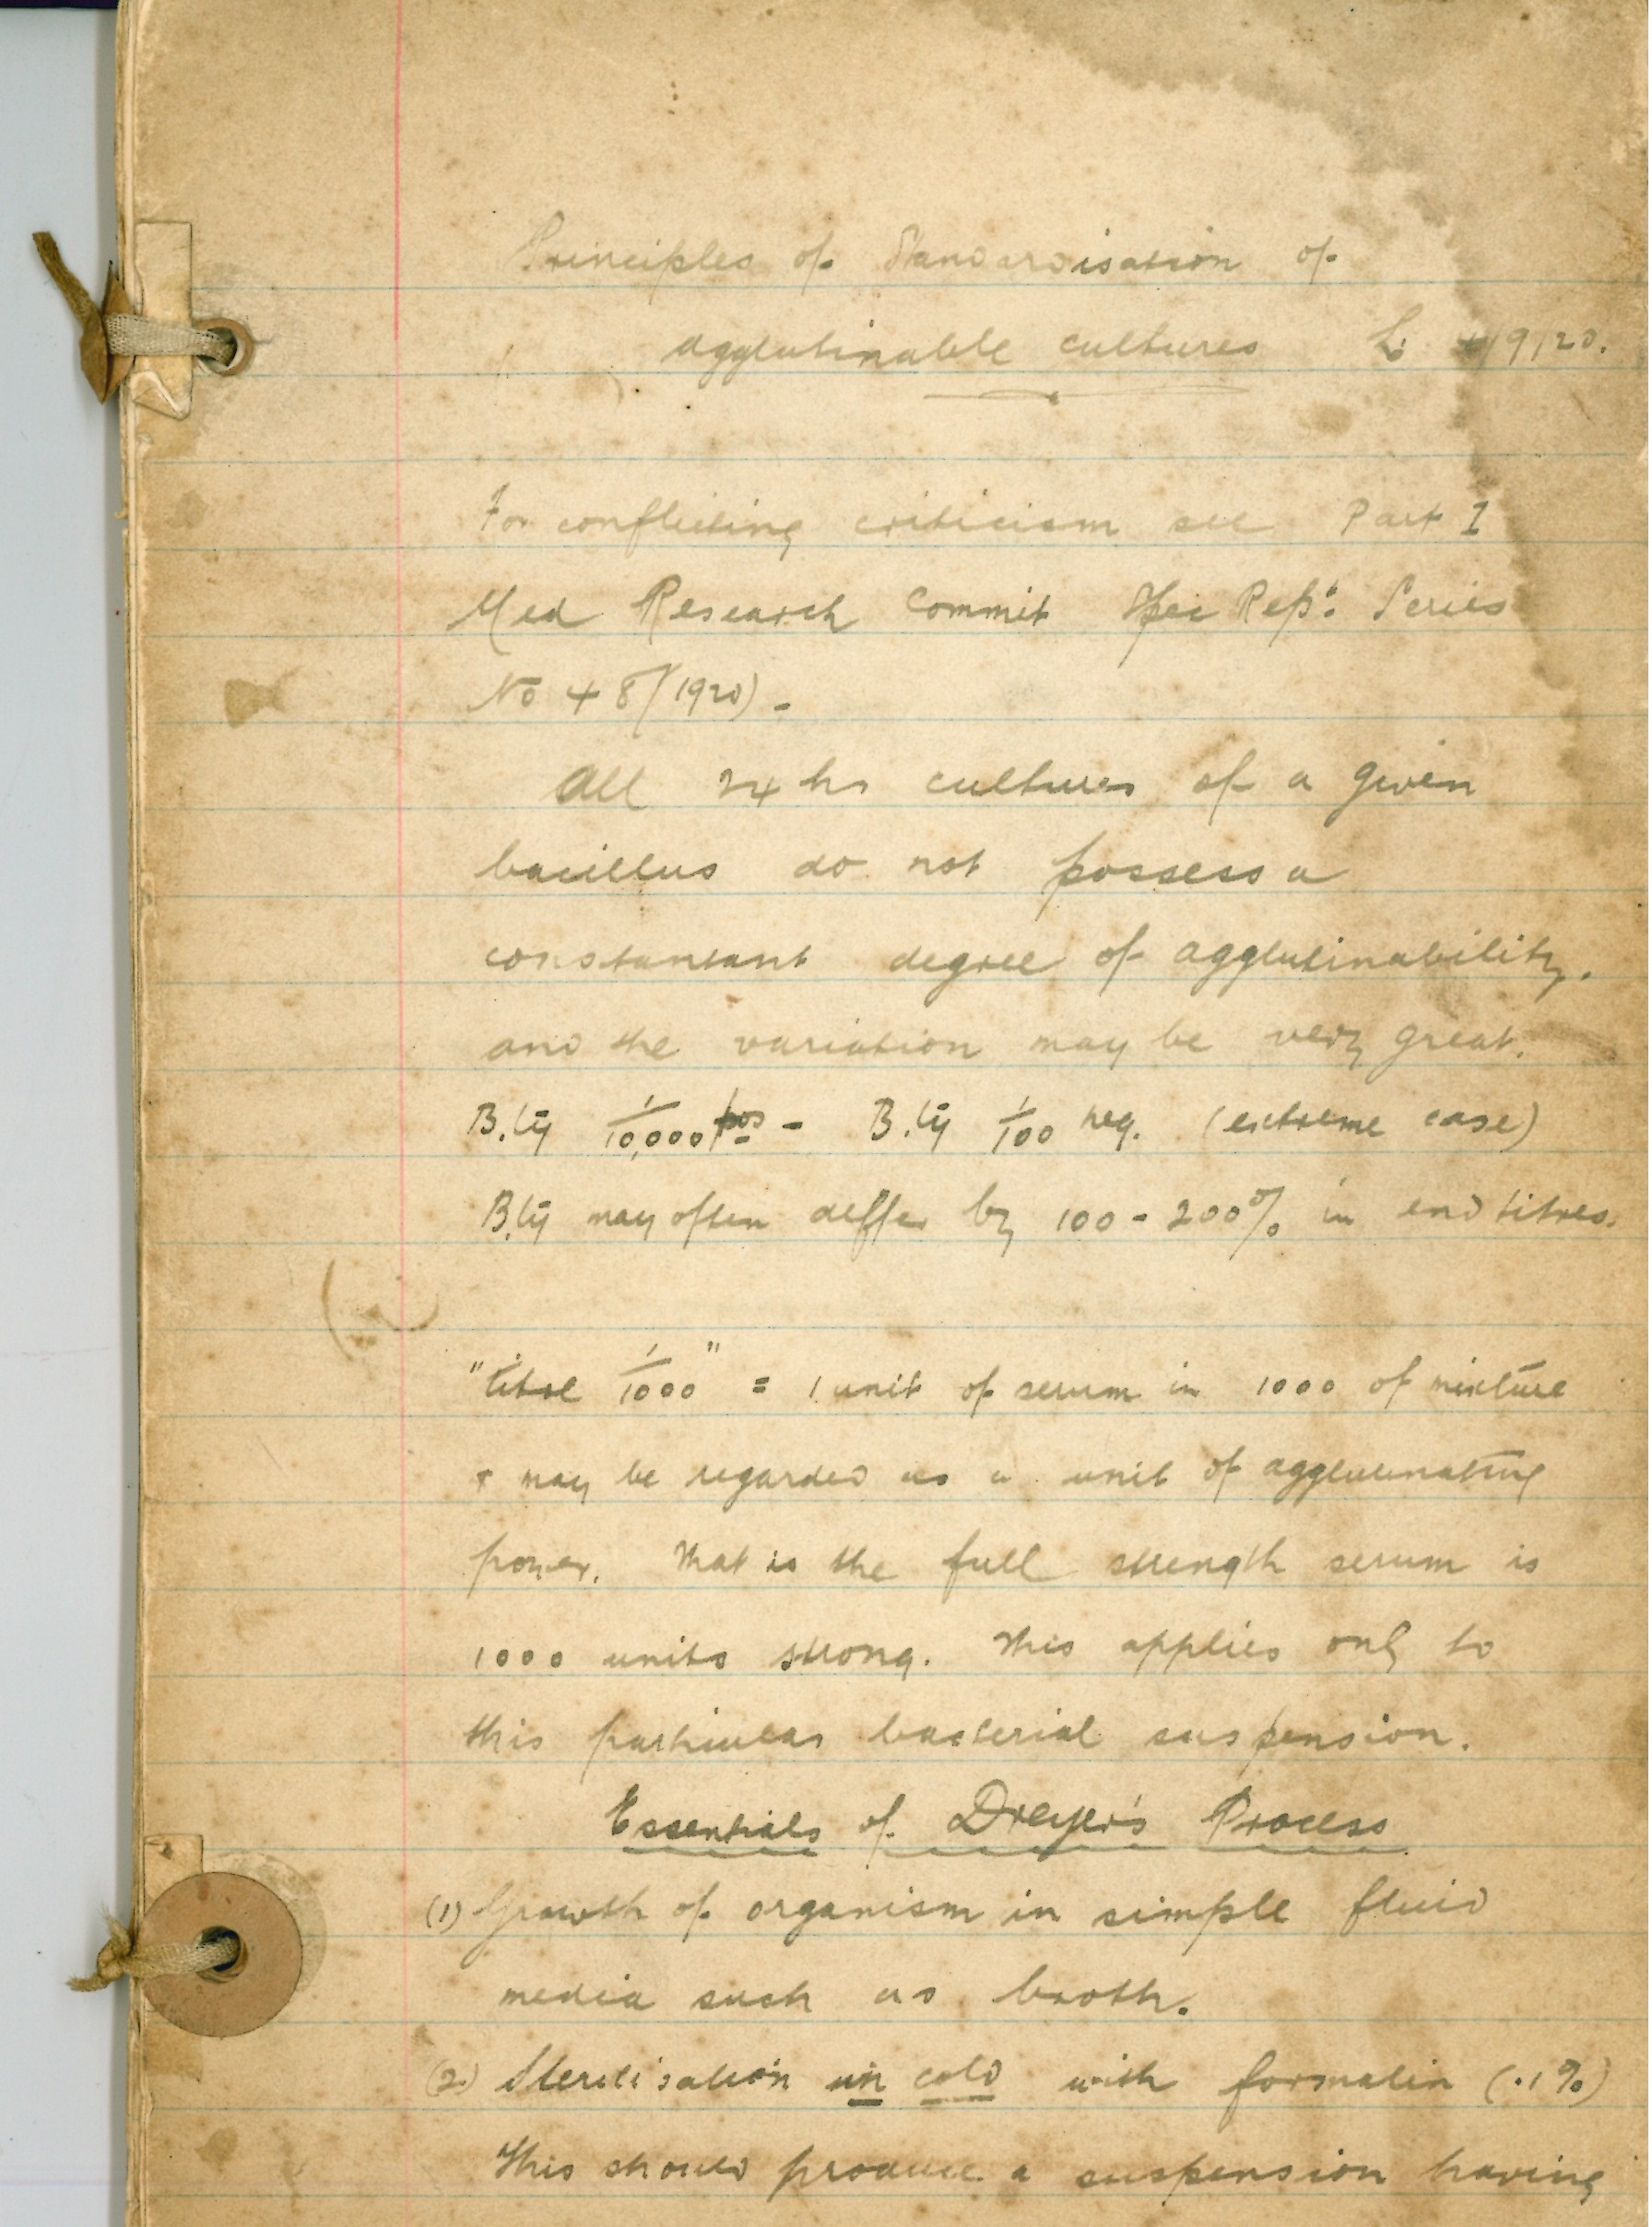 Principles of Standardisation of
agglutinable cultures L. 4/9/20.
For conflicting criticism see Part I
Med Research Commit Spec Rept: Series
No 48 (1920) -
All 24 hr cultures of a given
bacillus do not possess a
constantant degree of agglutinability.
and the variation may be very great.
B.ty 1/10,000 pos - B.ty 1/100 neg. (extreme case)
B.ty may often differ by 100 - 200% in end titres.
"titre 1/1000" = 1 unit of serum in 1000 of mixture
+ may be regarded as a unit of agglutinating
power. That is the full strength serum is
1000 units strong. This applies only to
this particular bacterial suspension.
Essentials of Dreyer's Process
(1) Growth of organism in simple fluid
media such as broth.
(2.) Sterilisation in cold with formalin (.1%)
This should produce a suspension having